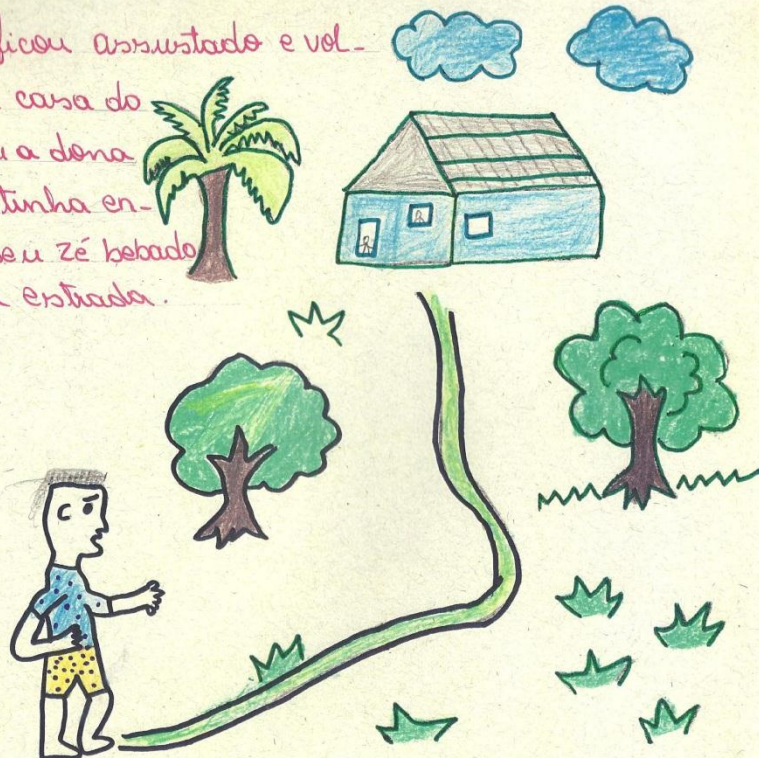 ficou assustado e vol-
casa do
u a dona
tinha en-
seu zé bebado
estrada.